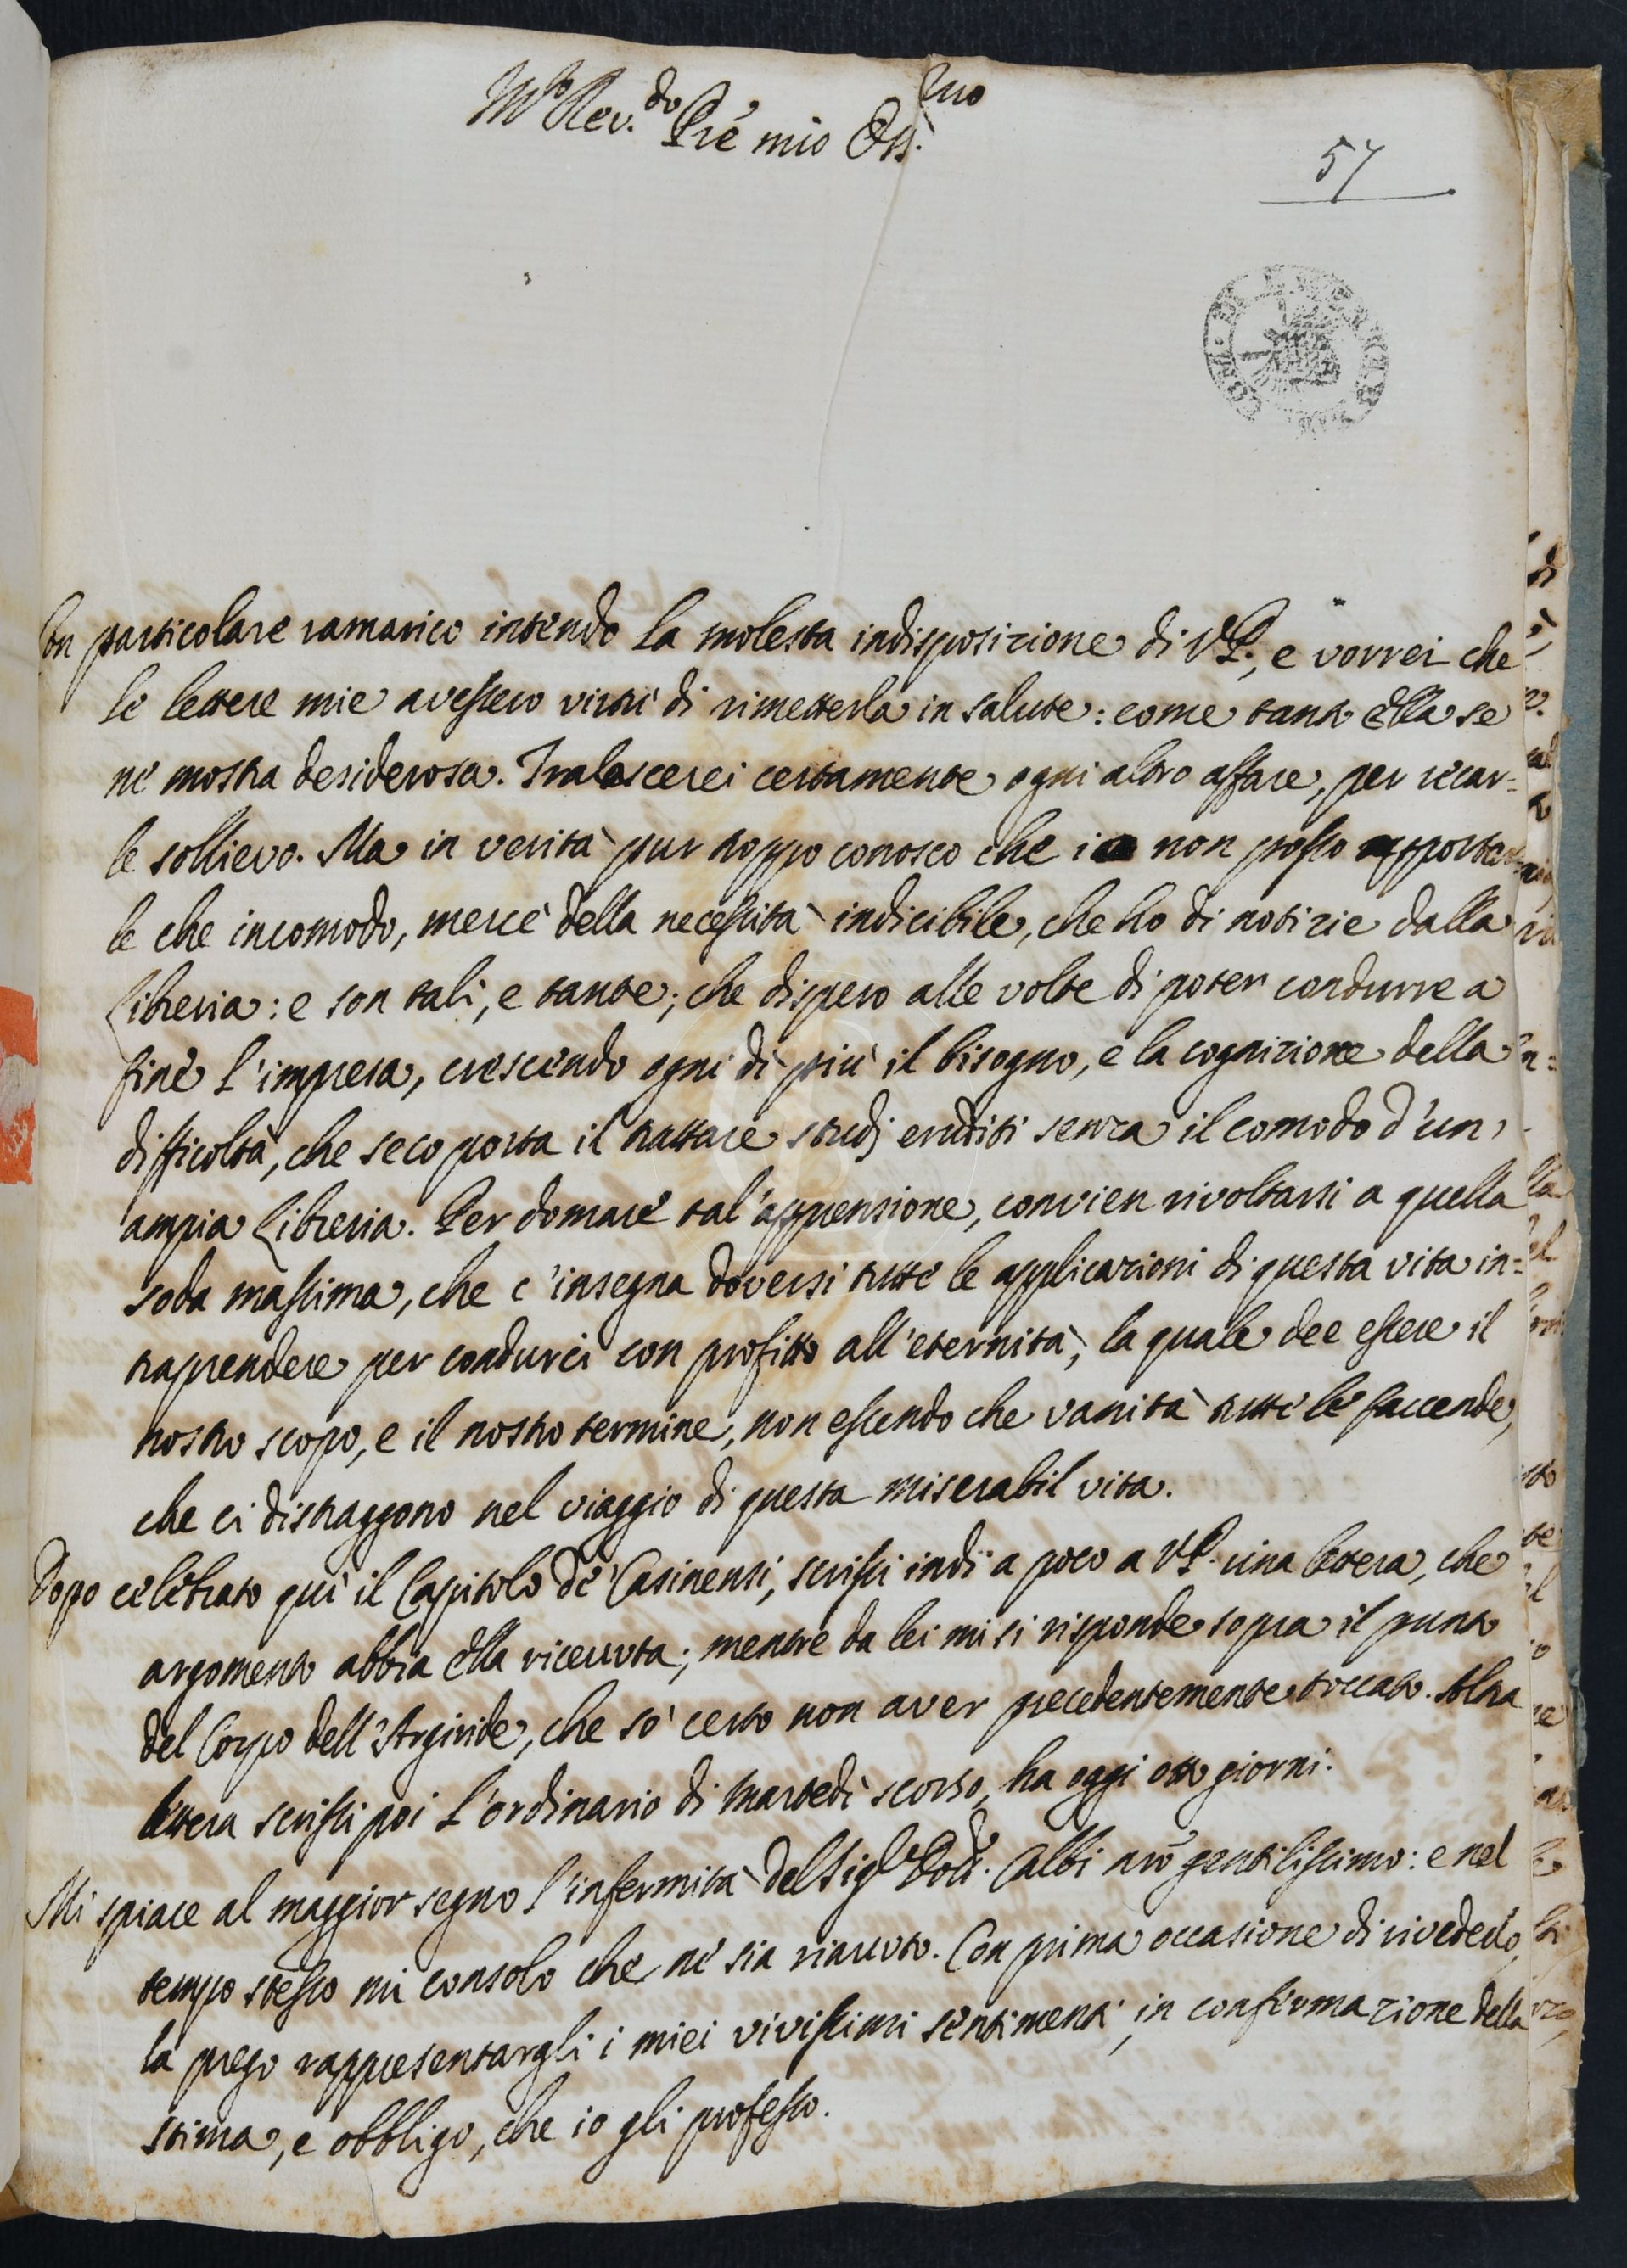 M.to Rev.do Pre mio Oss.mo
57
Con particolare ramarico intendo la molesta indisposizione di V.P., e vorrei che
le lettere mie avessero virtù di rimetterla in salute: come tanto Ella se
ne mostra desiderosa. Tralascerei certamente ogni altro affare, per recar=
le sollievo. Ma in verità pur troppo conosco che io non posso apportar=
le che incomodo, mercè della necessità indicibile, che ho di notizie dalla
Libreria: e son tali, e tante; che dispero alle volte di poter condurre a
fine l'impresa, crescendo ogni dì più il bisogno, e la cognizione della
difficoltà, che seco porta il trattare studj eruditi senza il comodo d'un'
ampia Libreria. Per domare tal'apprensione, convien rivoltarsi a quella
soda massima, che c'insegna doversi tutte le applicazioni di questa vita in=
traprendere per condurci con profitto all'eternità, la quale dee essere il
nostro scopo, e il nostro termine, non essendo che vanità tutte le faccende,
che ci distraggono nel viaggio di questa miserabil vita.
Dopo celebrato quì il Capitolo de' Casinensi, scrissi indi a poco a V.P. una lettera, che
argomento abbia Ella ricevuta; mentre da lei mi si risponde sopra il punto
del Corpo dell'Argiride, che sò certo non aver precedentemente toccato. Altra
lettera scrissi poi l'ordinario di Martedì scorso, ha oggi otto giorni.
Mi spiace al maggior segno l'infermità del Sig.r Dott. Calbi nro gentilissimo: e nel
tempo stesso mi consolo che ne sia riavuto. Con prima occasione di rivederlo,
la prego rappresentargli i miei vivissimi sentimenti, in confirmazione della
stima, e obbligo, che io gli professo.